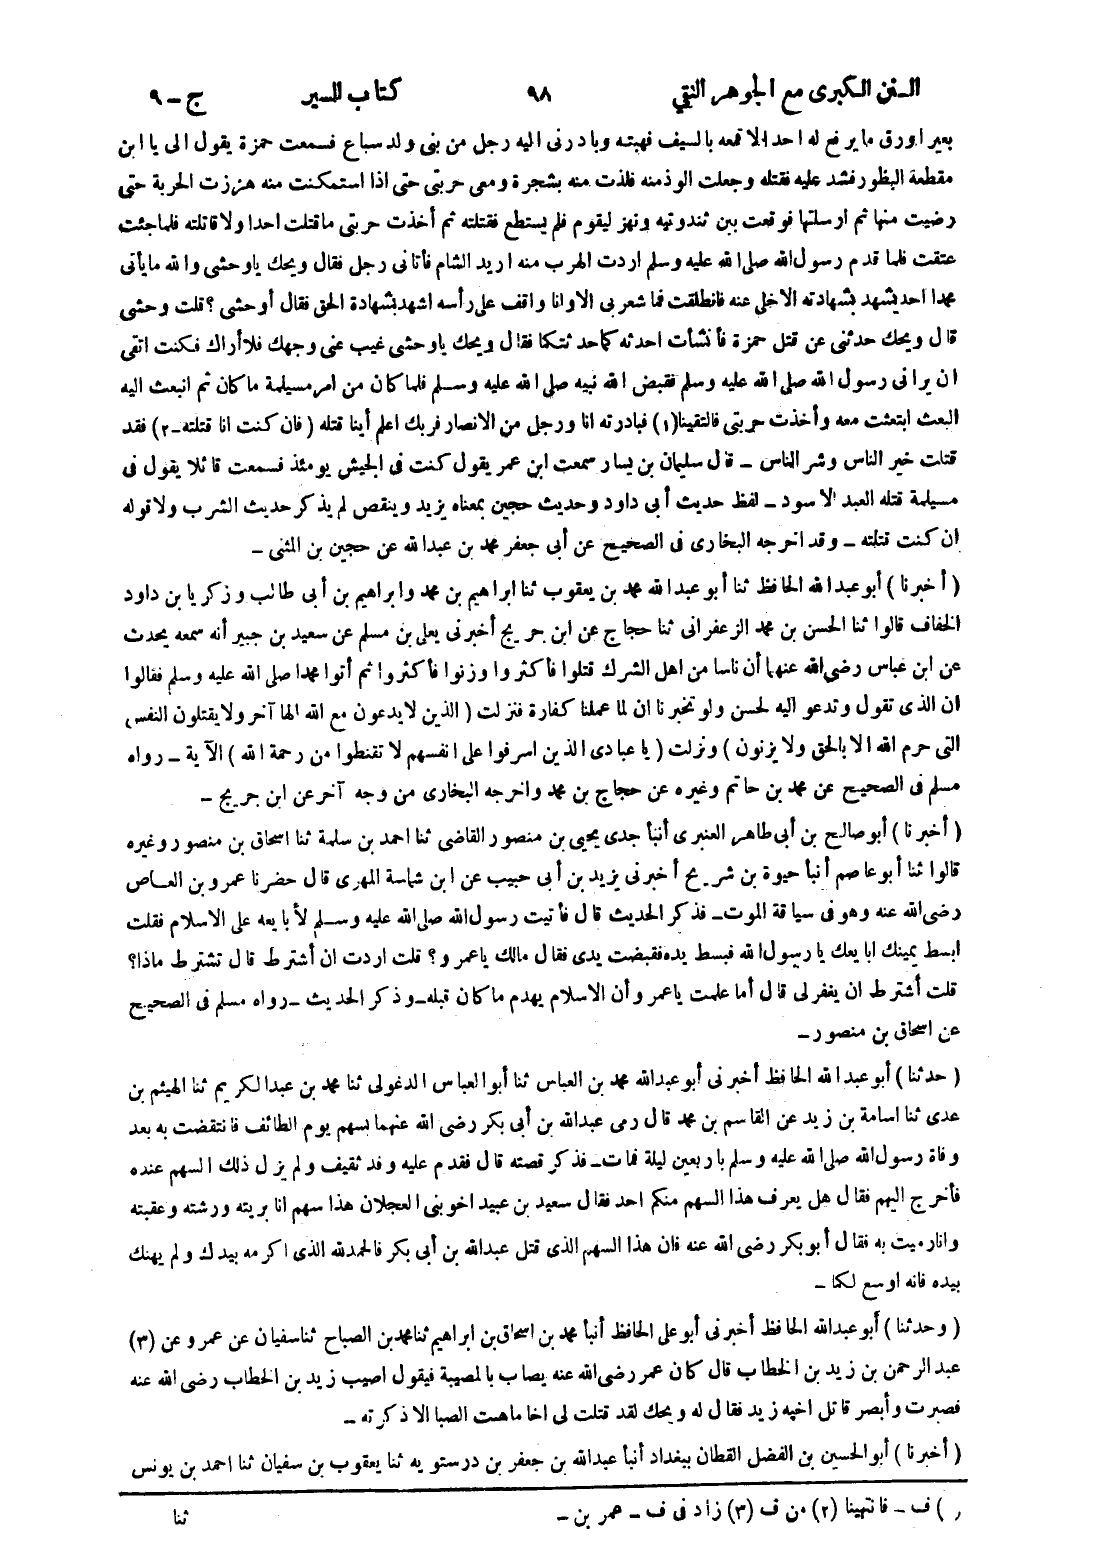 السنن الكبرى مع الجوهر النقي ٩٨ كتاب السير ج - ٩
بعير اورق ما يرفع له احد الا قمعه بالسيف فهبته وبادرنى اليه رجل من بنى ولد سباع فسمعت حمزة يقول الى يا ابن
مقطعة البظور فشد عليه فقتله وجعلت الوذ منه فلذت منه بشجرة ومعى حربتى حتى اذا استمكنت منه هززت الحربة حتى
رضيت منها ثم ارسلتها فوقعت بين ثندوتيه ونهز ليقوم فلم يستطع فقتلته ثم أخذت حربتى ماقتلت احدا ولا قاتلته فلما جئت
عتقت فلما قدم رسول الله صلى الله عليه وسلم اردت الهرب منه اريد الشام فأتانى رجل فقال ويحك ياوحشى والله مايأتى
محمدا احد يشهد بشهادته الاخلى عنه فانطلقت فما شعر بى الا وانا واقف على رأسه اشهد بشهادة الحق فقال أوحشى ؟ قلت وحشى
قال ويحك حدثنى عن قتل حمزة فأنشأت احدثه كما حدثتكما فقال ويحك ياوحشى غيب عنى وجهك فلا أراك فكنت اتقى
ان يرانى رسول الله صلى الله عليه وسلم فقبض الله نبيه صلى الله عليه وسلم فلما كان من امر مسيلمة ماكان ثم انبعث اليه
البعث ابتعثت معه وأخذت حربتى فالتقينا (١) فبادرته انا ورجل من الانصار فربك اعلم أينا قتله ( فان كنت انا قتلته - ٢) فقد
قتلت خير الناس وشر الناس - قال سليمان بن يسار سمعت ابن عمر يقول كنت فى الجيش يومئذ فسمعت قائلا يقول فى
مسيلمة قتله العبد الاسود - لفظ حديث أبى داود وحديث حجين بمعناه يزيد وينقص لم يذكر حديث الشرب ولا قوله
ان كنت قتلته - وقد اخرجه البخارى فى الصحيح عن أبى جعفر محمد بن عبدالله عن حجين بن المثنى -
( أخبرنا ) أبو عبد الله الحافظ ثنا أبو عبد الله محمد بن يعقوب ثنا ابراهيم بن محمد وابراهيم بن أبى طالب وزكريا بن داود
الخفاف قالوا ثنا الحسن بن محمد الزعفرانى ثنا حجاج عن ابن جريج أخبرنى يعلى بن مسلم عن سعيد بن جبير أنه سمعه يحدث
عن ابن عباس رضى الله عنهما أن ناسا من اهل الشرك قتلوا فأكثروا وزنوا فأكثروا ثم أتوا محمدا صلى الله عليه وسلم فقالوا
ان الذى تقول وتدعو اليه لحسن ولو تخبرنا ان لما عملنا كفارة فنزلت ( الذين لا يدعون مع الله الها آخر ولا يقتلون النفس
التى حرم الله الا بالحق ولا يزنون ) ونزلت ( يا عبادى الذين اسرفوا على انفسهم لا تقنطوا من رحمة الله ) الآية - رواه
مسلم فى الصحيح عن محمد بن حاتم وغيره عن حجاج بن محمد واخرجه البخارى من وجه آخر عن ابن جريج -
( أخبرنا ) أبو صالح بن أبى طاهر العنبرى أنبأ جدى يحيى بن منصور القاضى ثنا احمد بن سلمة ثنا اسحاق بن منصور وغيره
قالوا ثنا أبو عاصم أنبأ حيوة بن شريح أخبرنى يزيد بن أبى حبيب عن ابن شماسة المهرى قال حضرنا عمرو بن العاص
رضى الله عنه وهو فى سياقة الموت - فذكر الحديث قال فأتيت رسول الله صلى الله عليه وسلم لأبايعه على الاسلام فقلت
ابسط يمينك ابايعك يا رسول الله فبسط يده فقبضت يدى فقال مالك ياعمرو ؟ قلت اردت ان أشترط قال تشترط ماذا؟
قلت أشترط ان يغفر لى قال أما علمت ياعمرو أن الاسلام يهدم ماكان قبله - وذكر الحديث - رواه مسلم فى الصحيح
عن اسحاق بن منصور -
( حدثنا ) أبو عبد الله الحافظ أخبرنى أبو عبدالله محمد بن العباس ثنا أبو العباس الدغولى ثنا محمد بن عبدالكريم ثنا الهيثم بن
عدى ثنا اسامة بن زيد عن القاسم بن محمد قال رمى عبدالله بن أبى بكر رضى الله عنهما بسهم يوم الطائف فانتقضت به بعد
وفاة رسول الله صلى الله عليه وسلم باربعين ليلة فمات - فذكر قصته قال فقدم عليه وفد ثقيف ولم يزل ذلك السهم عنده
فأخرج اليهم فقال هل يعرف هذا السهم منكم احد فقال سعيد بن عبيد اخو بنى العجلان هذا سهم انا بريته ورشته وعقبته
وانا رميت به فقال أبو بكر رضى الله عنه فان هذا السهم الذى قتل عبدالله بن أبى بكر فالحمدلله الذى اكرمه بيدك ولم يهنك
بيده فانه اوسع لكما -
( وحدثنا ) أبو عبدالله الحافظ أخبرنى أبو على الحافظ أنبأ محمد بن اسحاق بن ابراهيم ثنا محمد بن الصباح ثنا سفيان عن عمرو عن (٣)
عبد الرحمن بن زيد بن الخطاب قال كان عمر رضى الله عنه يصاب بالمصيبة فيقول اصيب زيد بن الخطاب رضى الله عنه
فصبرت وأبصر قاتل اخيه زيد فقال له ويحك لقد قتلت لى اخا ماهبت الصبا الا ذكرته -
( أخبرنا ) أبو الحسين بن الفضل القطان ببغداد أنبأ عبدالله بن جعفر بن درستويه ثنا يعقوب بن سفيان ثنا احمد بن يونس
) ف - فانتهينا (٢) من ف (٣) زاد فى ف - عمر بن - ثنا